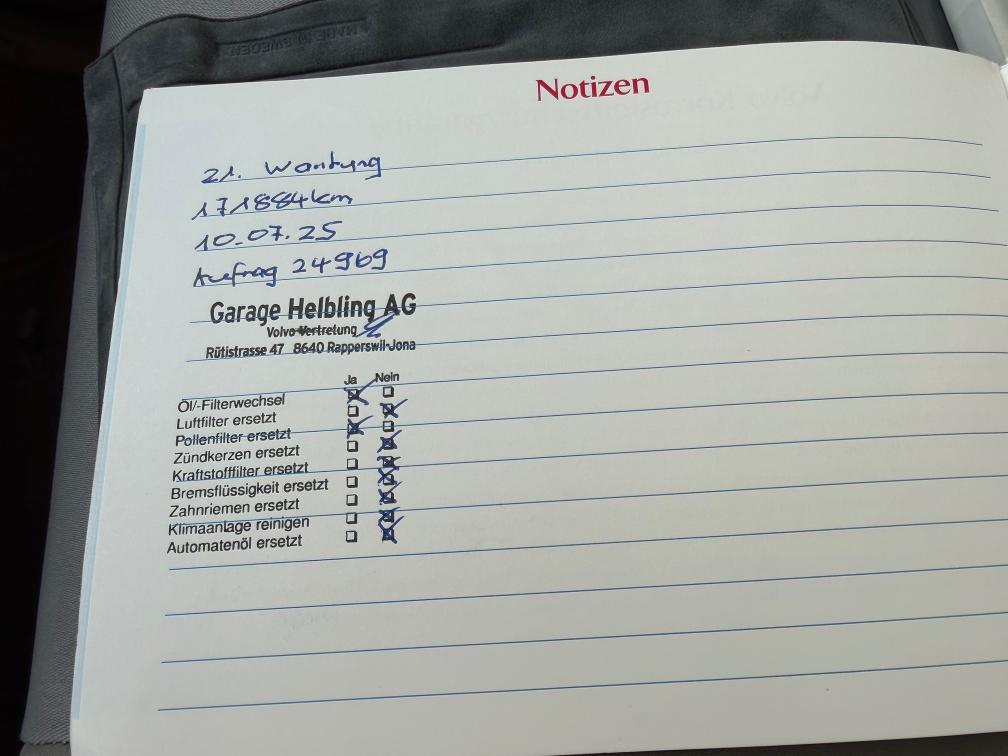 MADE IN SWEDEN
Notizen
21. Wartung
171884km
10.07.25
Auftrag 24969
Garage Helbling AG
Volvo-Vertretung
Rütistrasse 47 8640 Rapperswil-Jona
Ja Nein
Öl/-Filterwechsel
Luftfilter ersetzt
Pollenfilter ersetzt
Zündkerzen ersetzt
Kraftstofffilter ersetzt
Bremsflüssigkeit ersetzt
Zahnriemen ersetzt
Klimaanlage reinigen
Automatenöl ersetzt